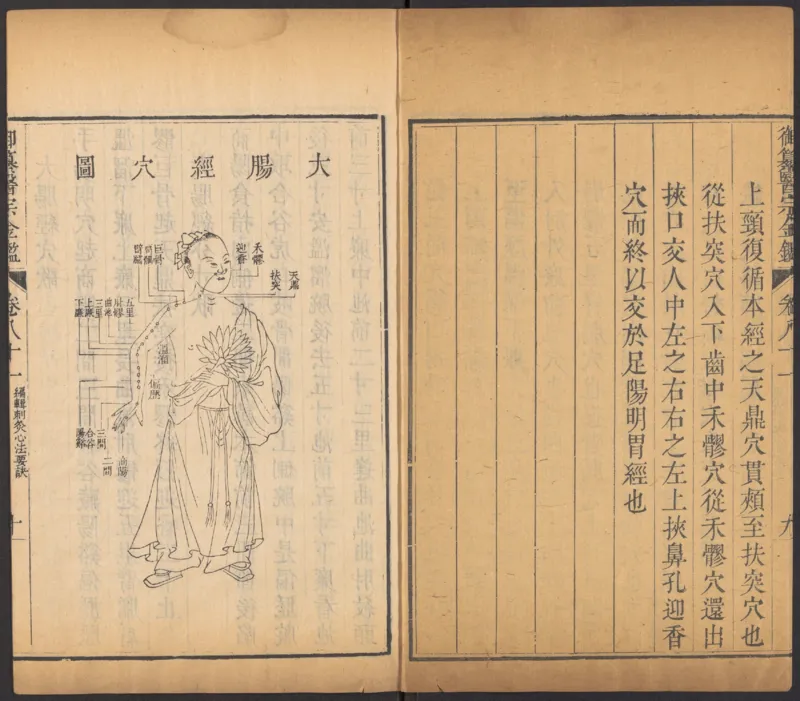 上頸復循本經之天鼎穴貫頰至扶突穴也
從扶突穴入下齒中禾髎穴從禾髎穴還出
挾口交人中左之右右之左上挾鼻孔迎香
穴而終以交於足陽明胃經也
御纂醫宗金鑑
卷八十一
九
大腸經穴圖
天鼎
扶突
禾髎
迎香
巨骨
肩髃
臂臑
五里
肘髎
曲池
三里
上廉
下廉
溫溜
偏歷
三間
合谷
陽谿
商陽
二間
御纂醫宗金鑑
卷八十一
編輯刺灸心法要訣
十